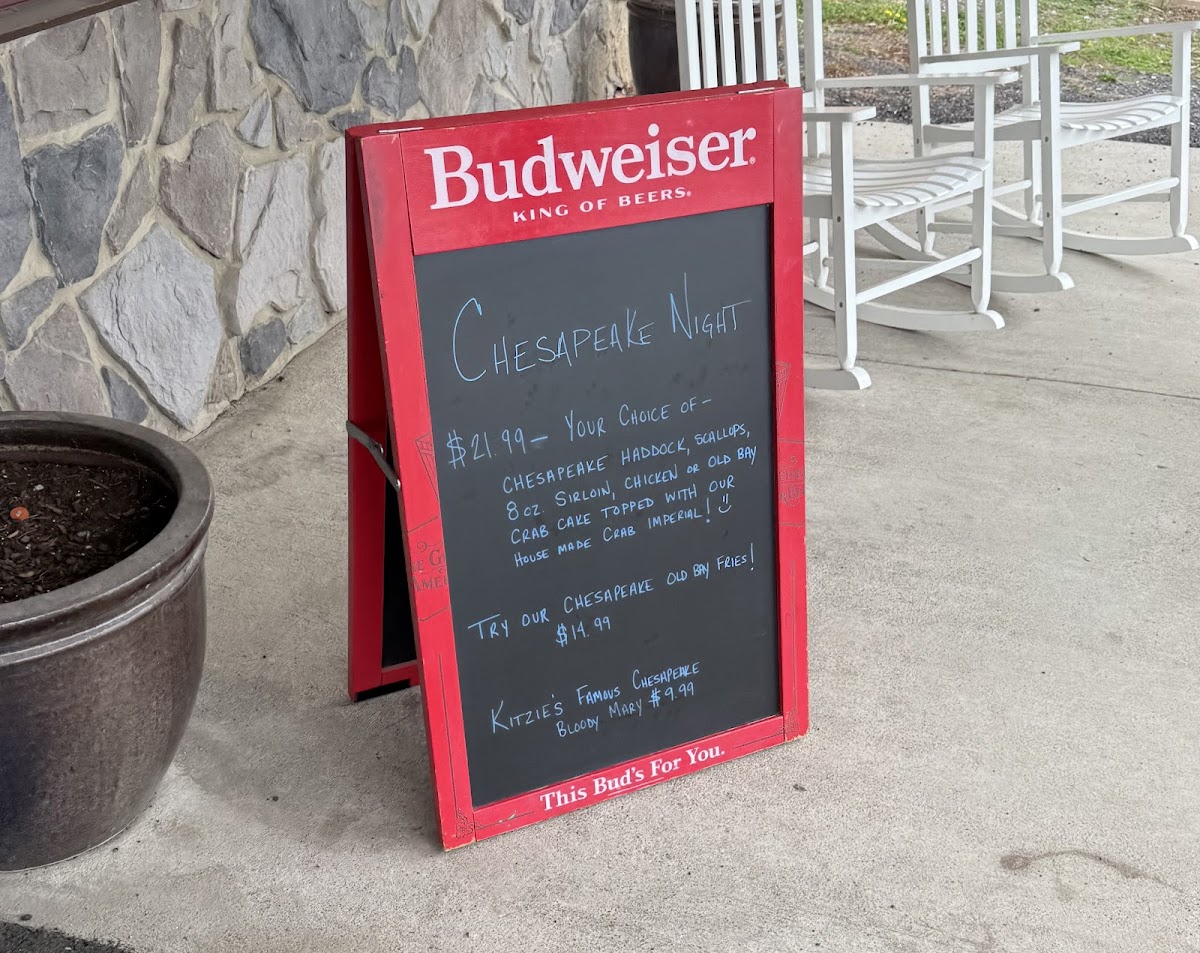 Budweiser®
KING OF BEERS®
CHESAPEAKE NIGHT
$21.99 - YOUR CHOICE OF -
CHESAPEAKE HADDOCK, SCALLOPS,
8 OZ. SIRLOIN, CHICKEN OR OLD BAY
CRAB CAKE TOPPED WITH OUR
HOUSE MADE CRAB IMPERIAL! :)
TRY OUR CHESAPEAKE OLD BAY FRIES!
$14.99
KITZIE'S FAMOUS CHESAPEAKE
BLOODY MARY $9.99
This Bud's For You.